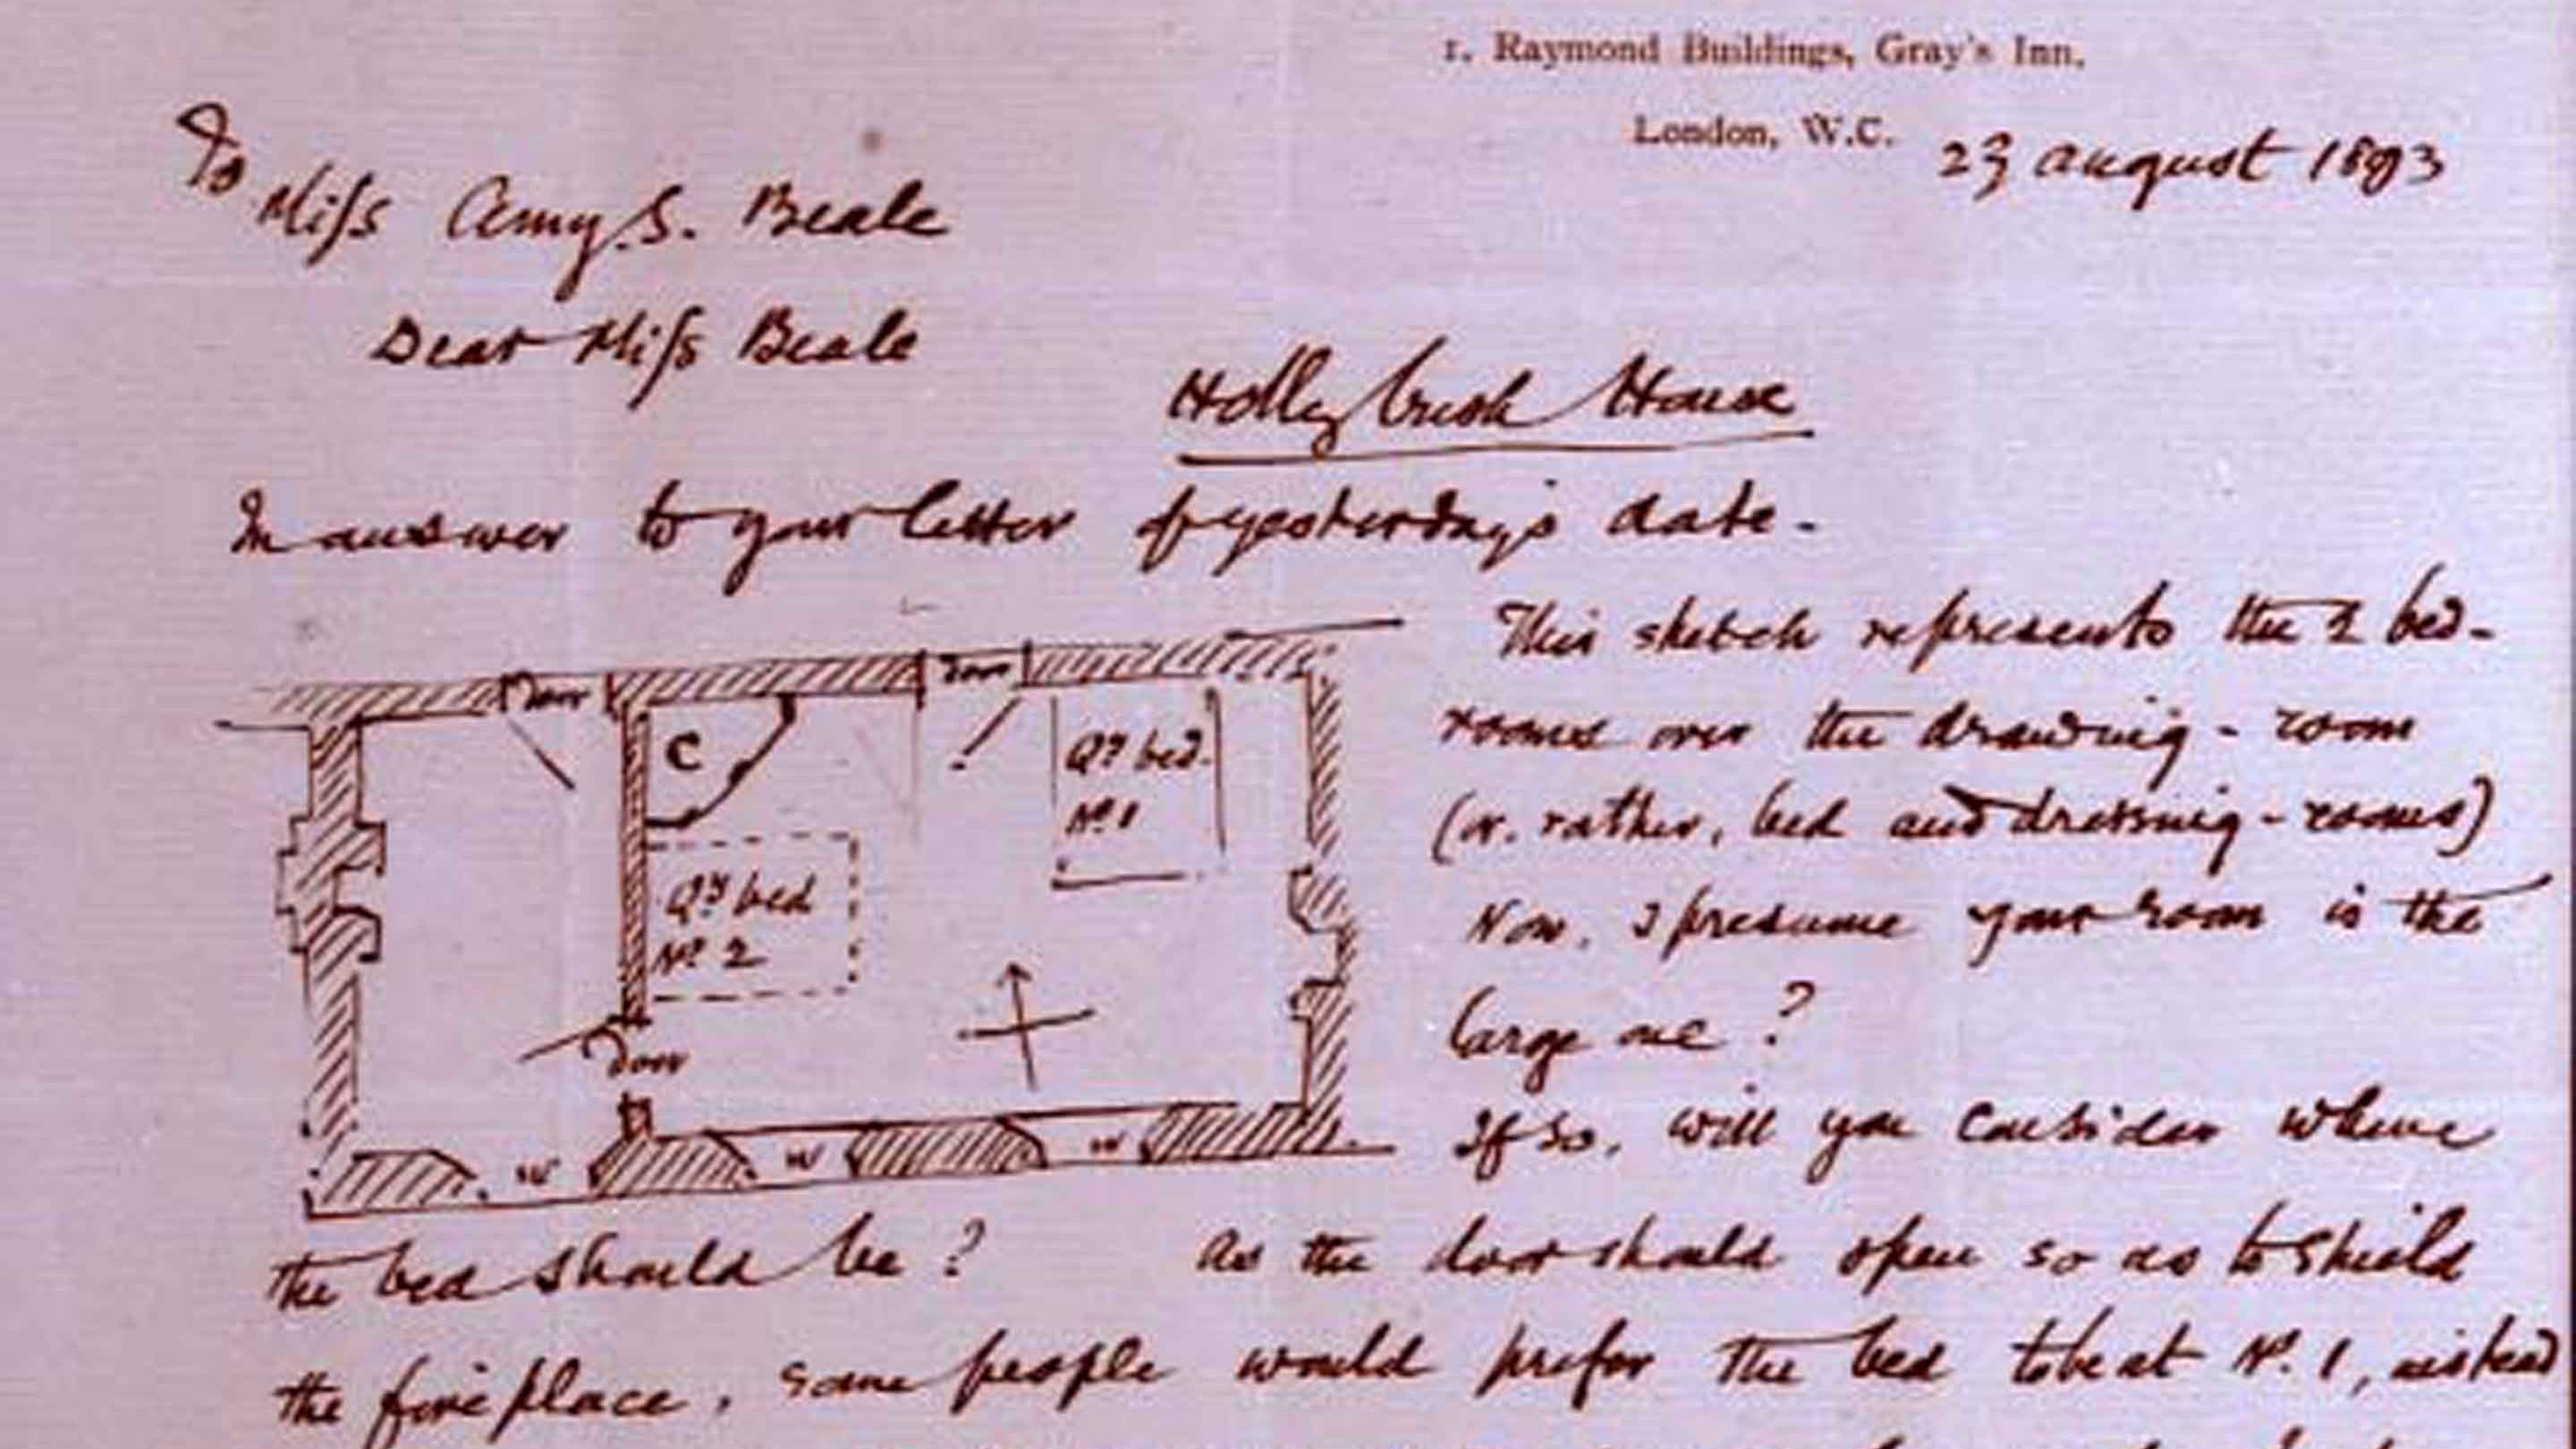 1. Raymond Buildings, Gray's Inn,
London, W.C. 23 august 1893
To
Miss Amy. S. Beale
Dear Miss Beale
Holly bush House
In answer to your letter of yesterday's date -
This sketch represents the 2 bed-
rooms over the drawing-room
(or. rather, bed and dressing-rooms)
Now. I presume your room is the
large one ?
If so, will you consider where
Door
Door
C
Qy. bed
No. 1
Qy. bed
No. 2
Door
W
W
W
the bed should be ? As the door should open so as to shield
the fire place, some people would prefer the bed to be at No. 1, instead